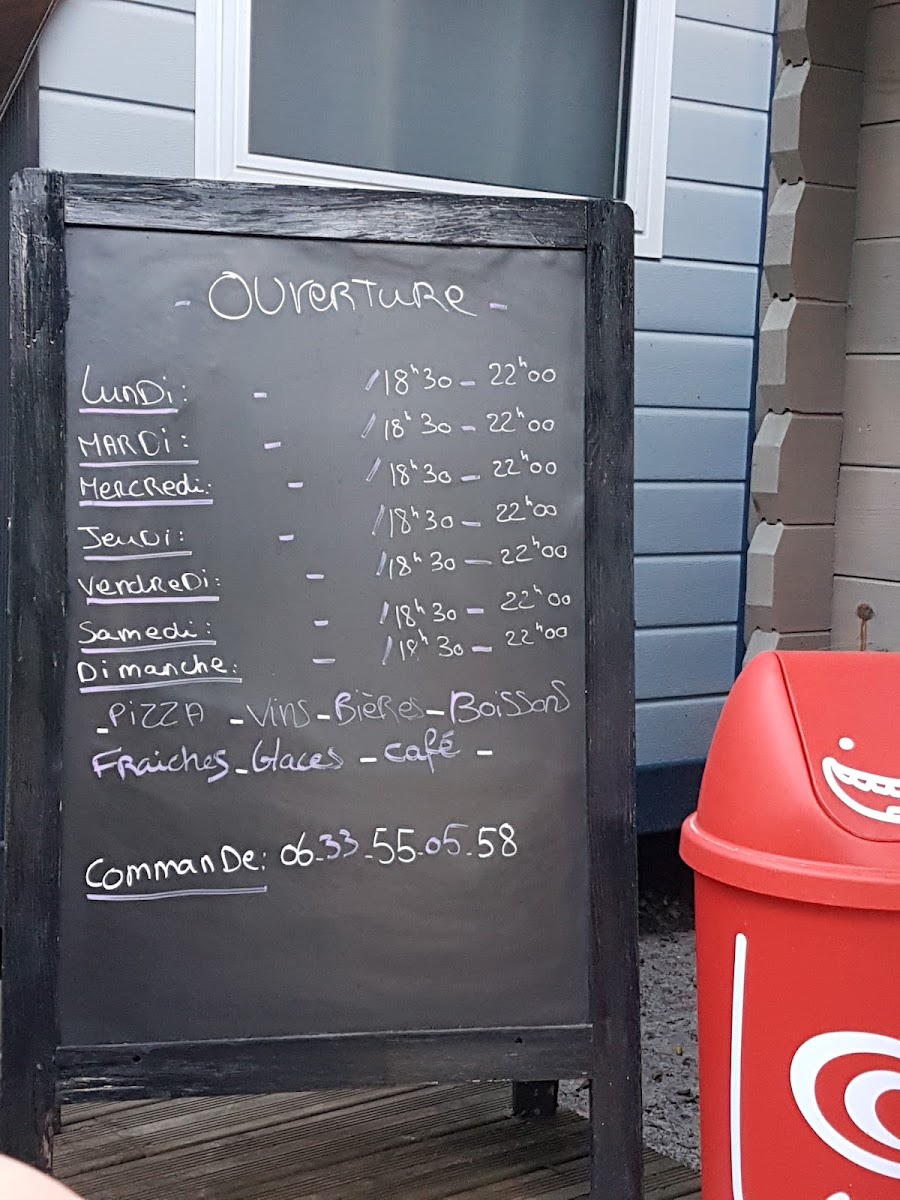 - OUVERTURE -
LUNDi: - /18h30 - 22h00
MARDi: - /18h30 - 22h00
MERCRedi: - /18h30 - 22h00
JeuDi: - /18h30 - 22h00
VendReDi: - /18h30 - 22h00
Samedi: - /18h30 - 22h00
Dimanche: - /18h30 - 22h00
-PiZZA -Vins-BièRes-Boissons
FRaiches-Glaces -café -
CommanDe: 06.33.55.05.58